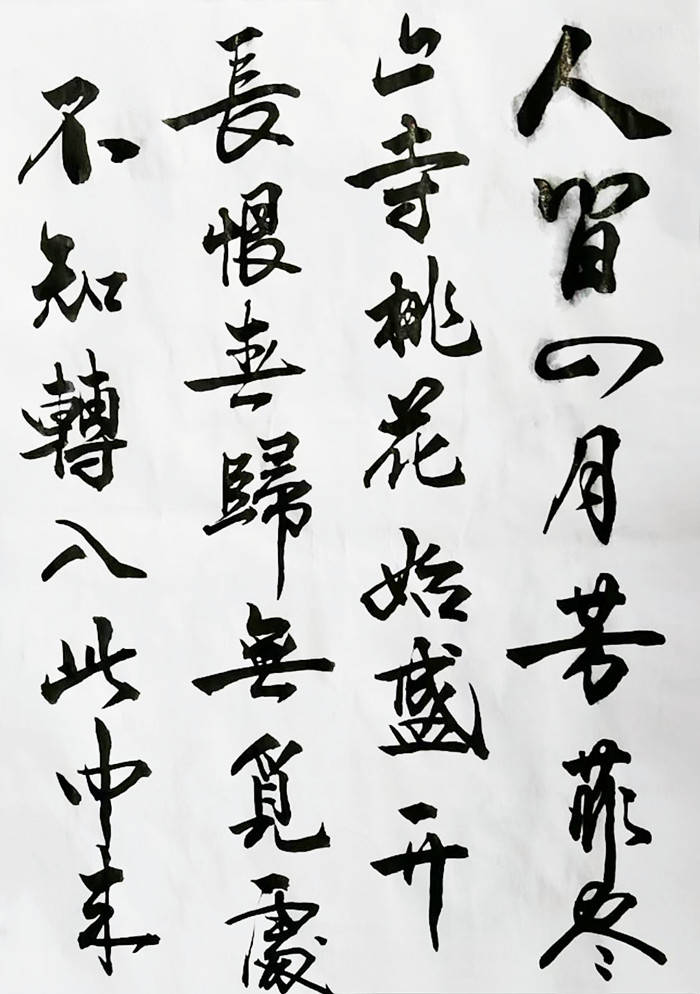 人間四月芳菲尽
山寺桃花始盛开
長恨春歸無覓處
不知轉入此中来